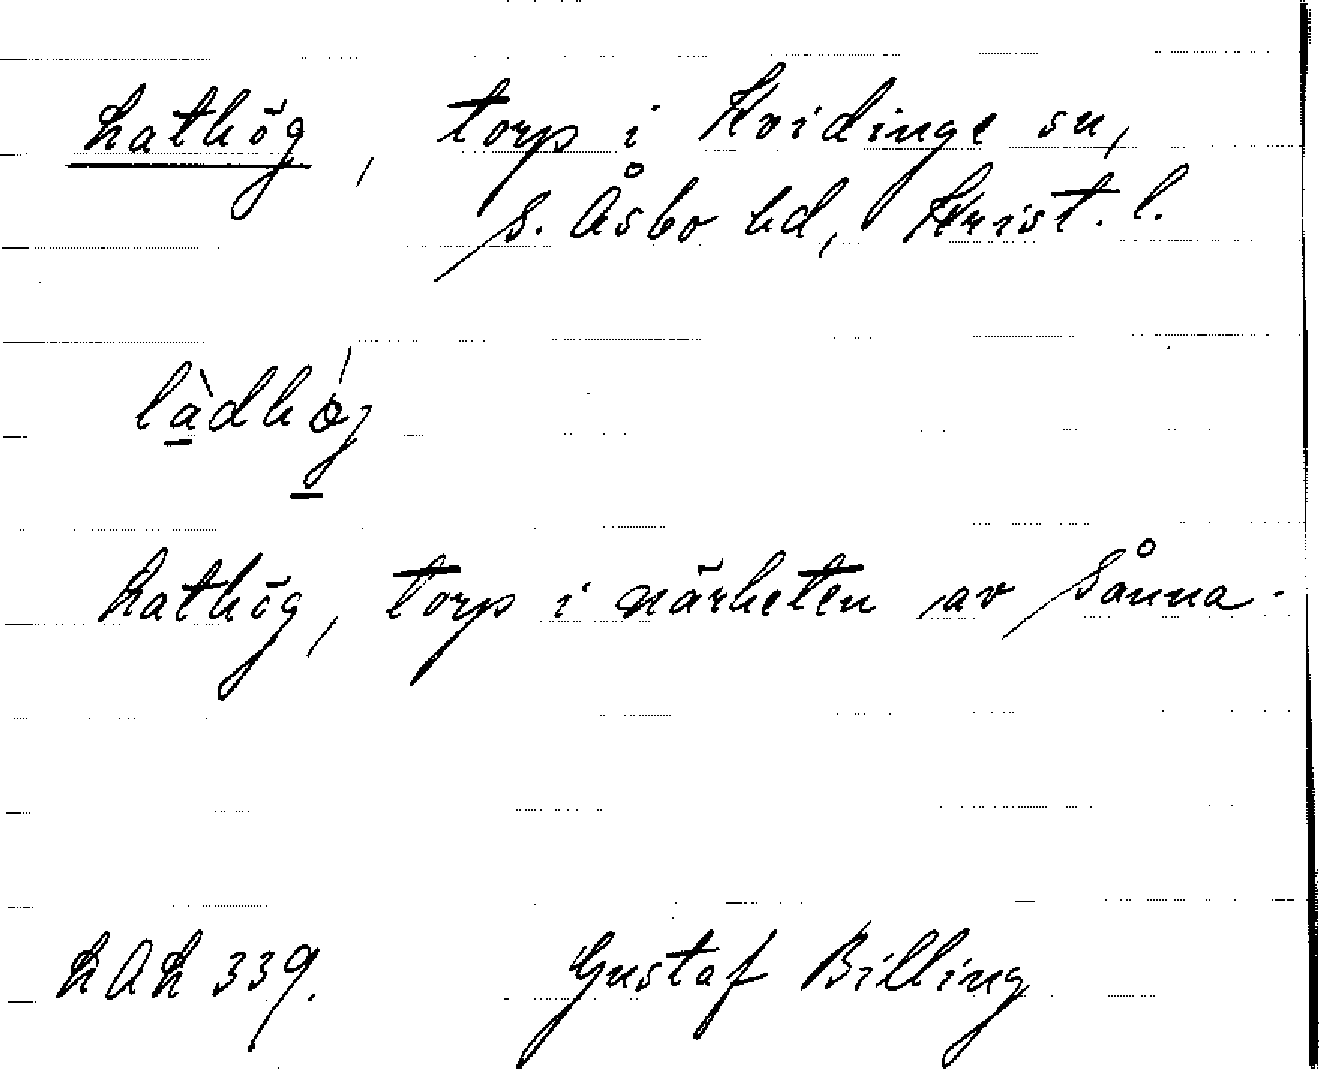 Lathög, torp i Kvidinge sn,
S. Åsbo hd, Krist. l.
làdhǿg
Lathög, torp i närheten av Sånna.
LAL 339. Gustaf Billing